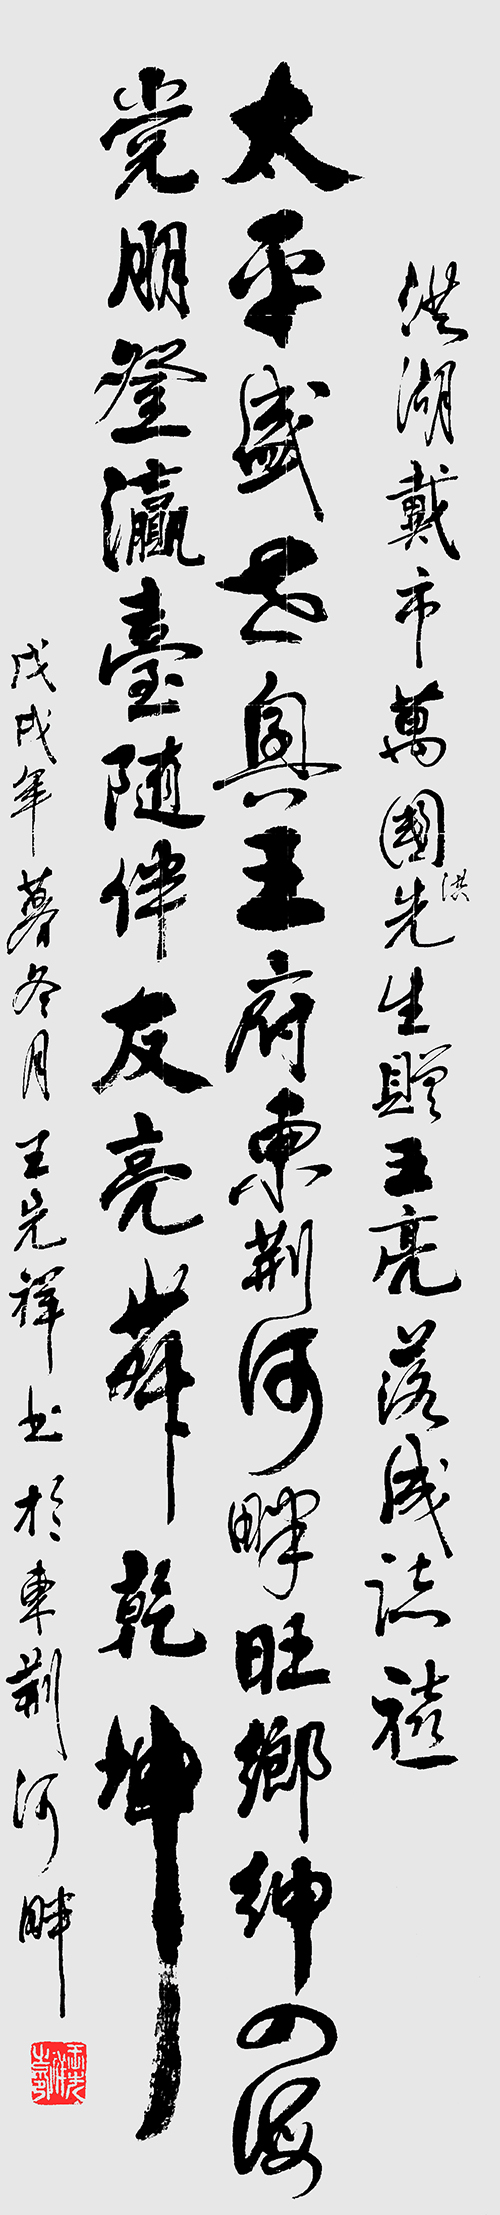 洪湖戴市萬國先生贈王亮落成誌禧
洪
太平盛世興王府東荆河畔旺鄉紳四海
党朋登瀛臺随伴友亮舞乾坤
戊戌年暮冬月王先祥书於東荆河畔